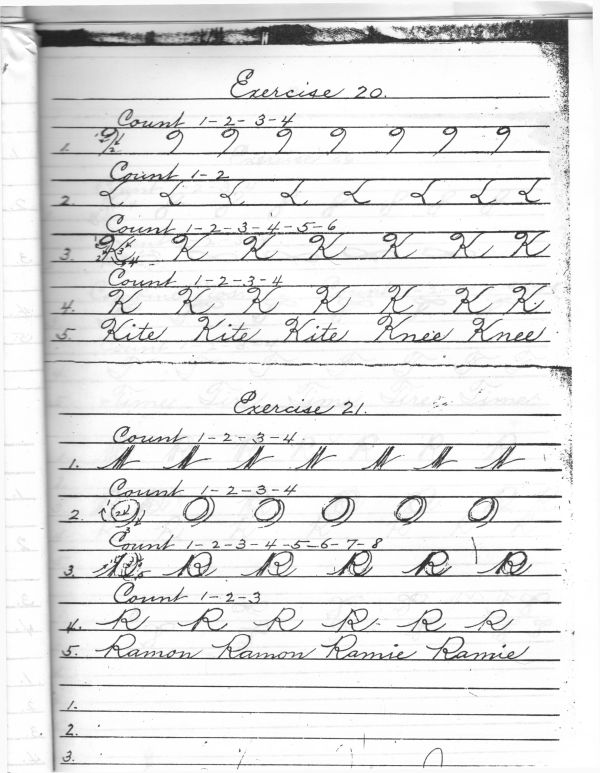 Exercise 20.
Count 1-2-3-4
1. 9 9 9 9 9 9 9
Count 1-2
2.
Count 1-2-3-4-5-6
3. K K K K K K K
Count 1-2-3-4
4. K K K K K K K
5. Kite Kite Kite Knee Knee
Exercise 21.
Count 1-2-3-4.
1.
Count 1-2-3-4
2. O O O O O O
Count 1-2-3-4-5-6-7-8
3. R R R R R R
Count 1-2-3
4. R R R R R R
5. Ramon Ramon Ramie Ramie
1.
2.
3.